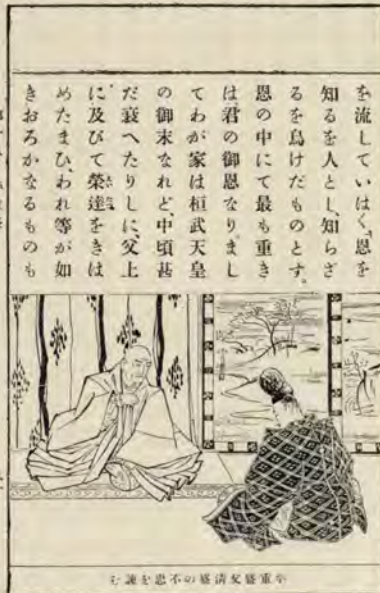 を流していはく、「恩を
知るを人とし、知らざ
るを鳥けだものとす。
恩の中にて最も重き
は、君の御恩なり。まし
てわが家は桓武天皇
の御末なれど、中頃甚
だ衰へたりしに、父上
に及びて榮達をきは
めたまひ、われ等が如
きおろかなるものも
平重盛父淸盛の不忠を諫む